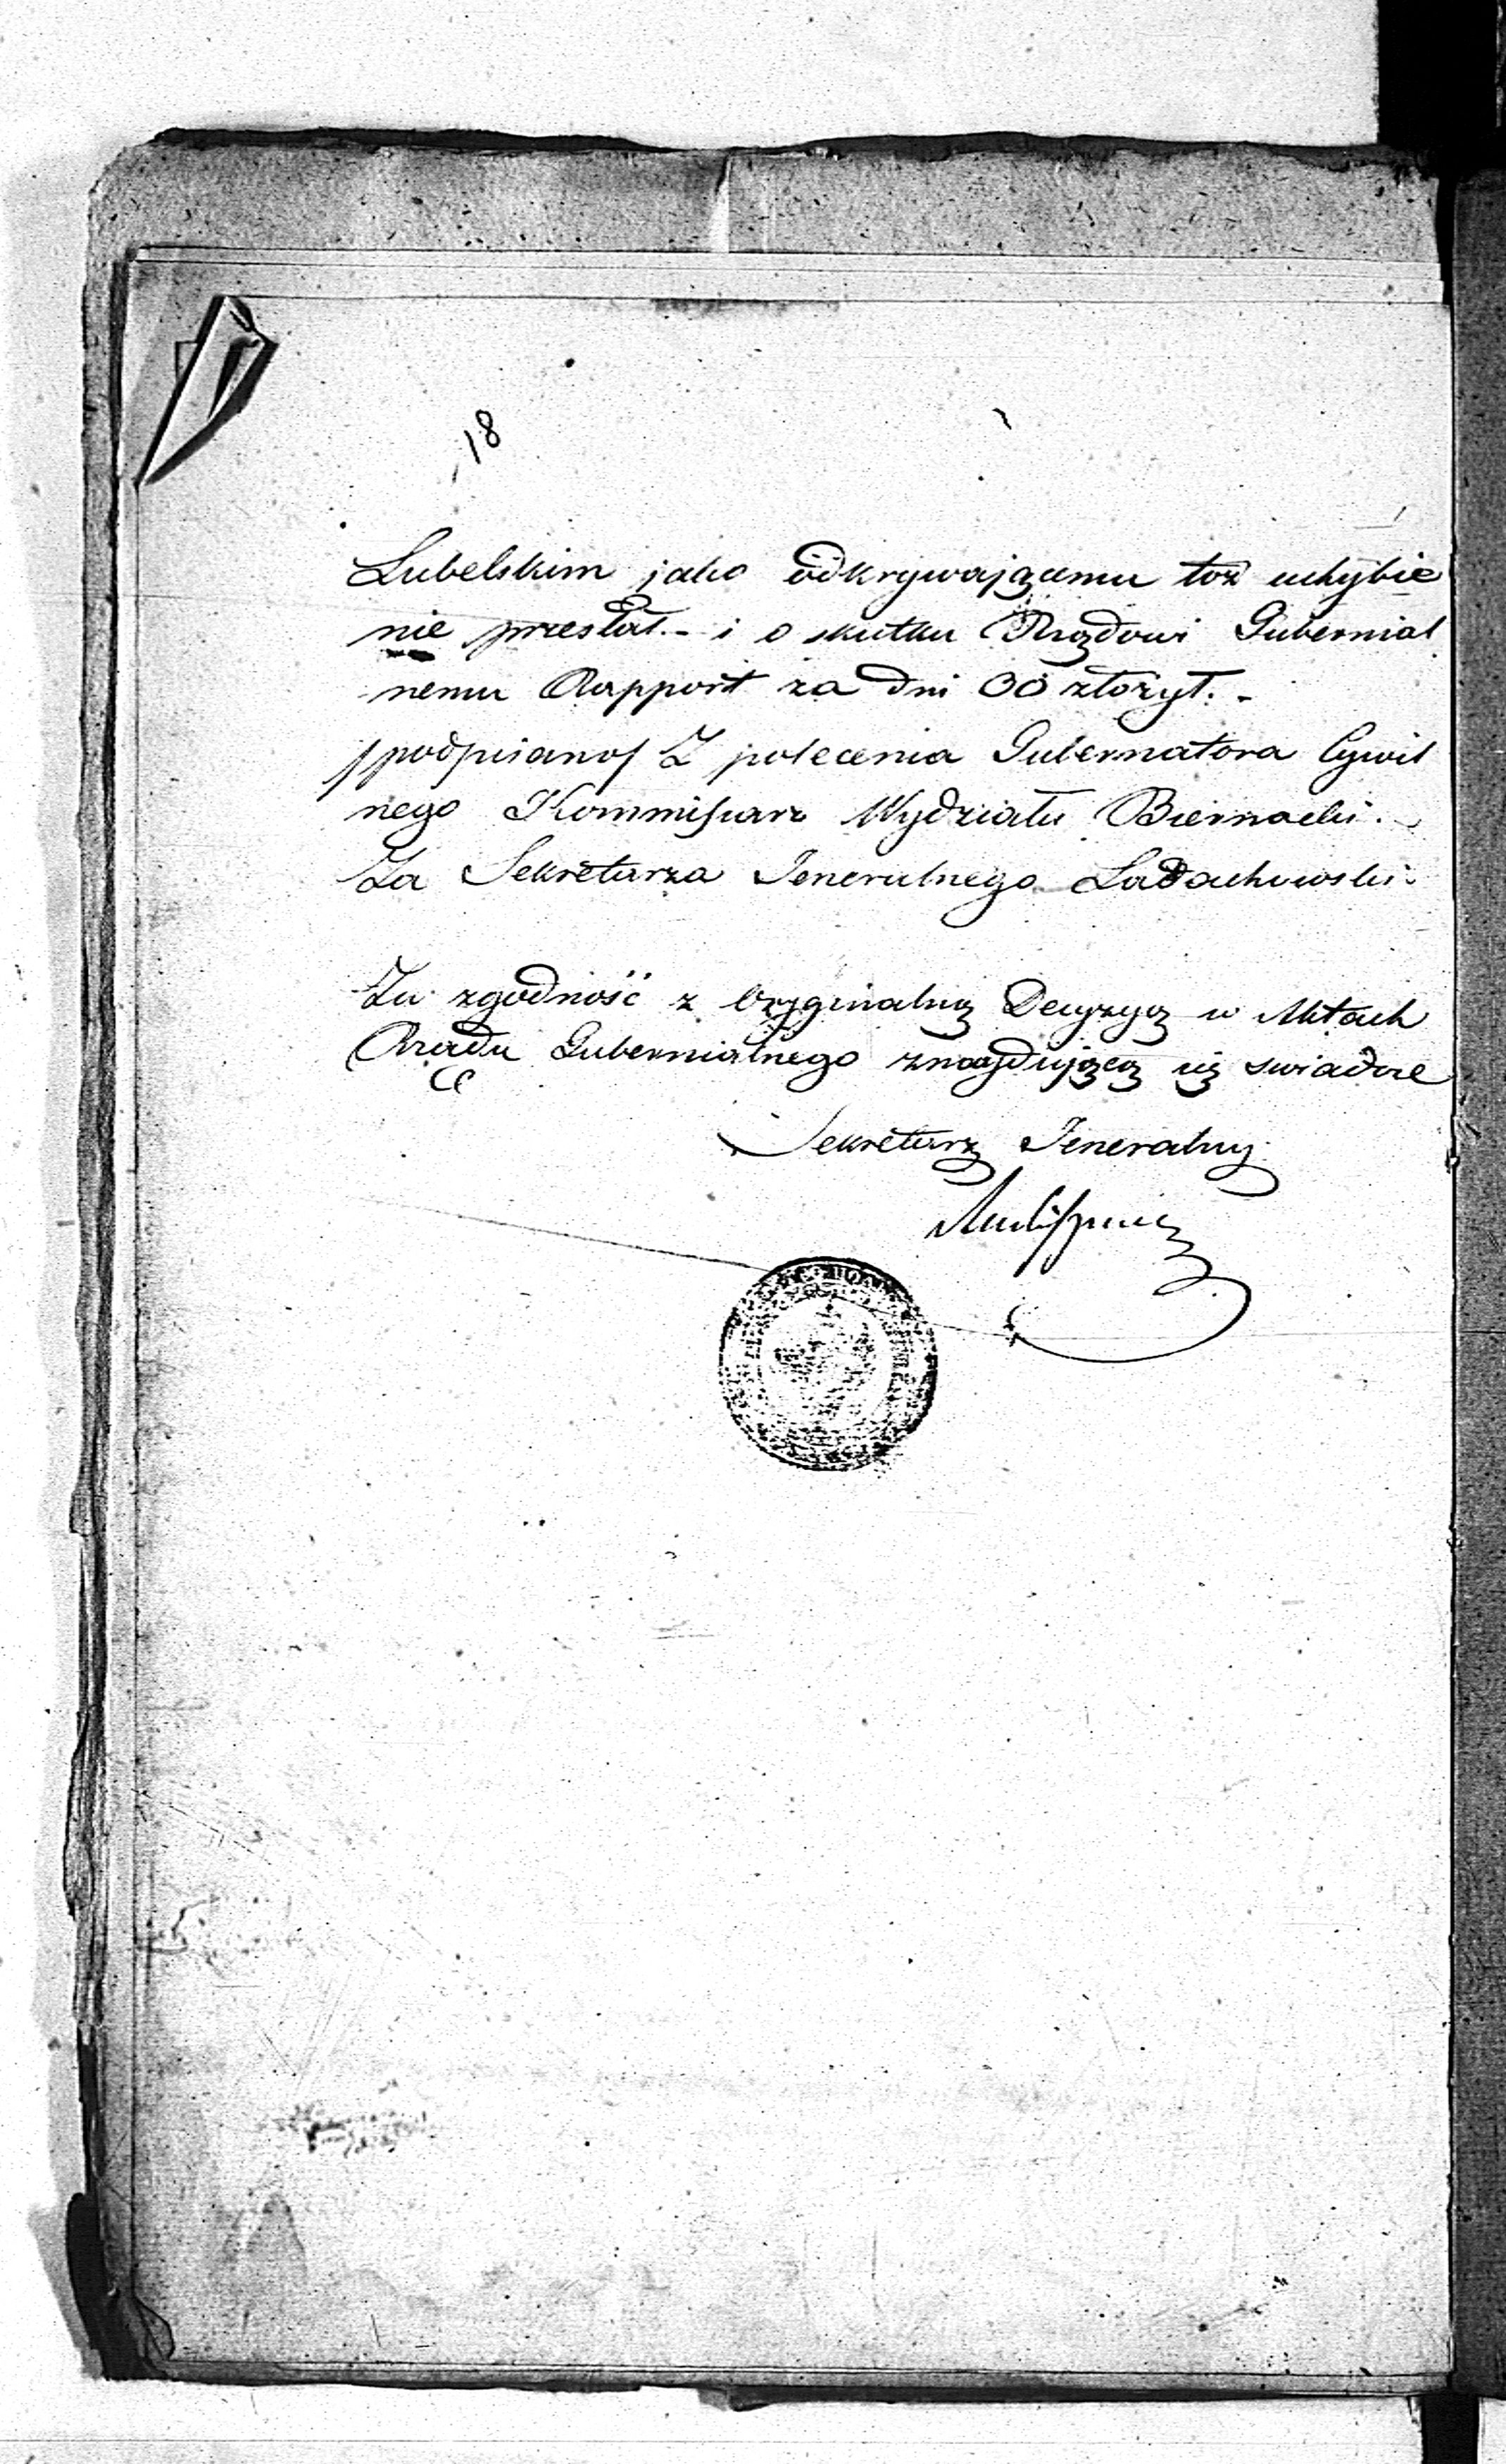 18
Lubelskim jako odkrywającemu toż uchybie
nie przesłał.- i o skutku Rządowi Gubernial
nemu Rapport za dni 30 złożył.-
/podpisano/ Z polecenia Gubernatora Cywil
nego Kommissarz Wydziału Biernacki.
Za Sekretarza Jeneralnego Ladachowski.
Za zgodność z Oryginalną Decyzyą w Aktach
Rządu Gubernialnego znajdującą się swiadczę
Sekretarz Jeneralny